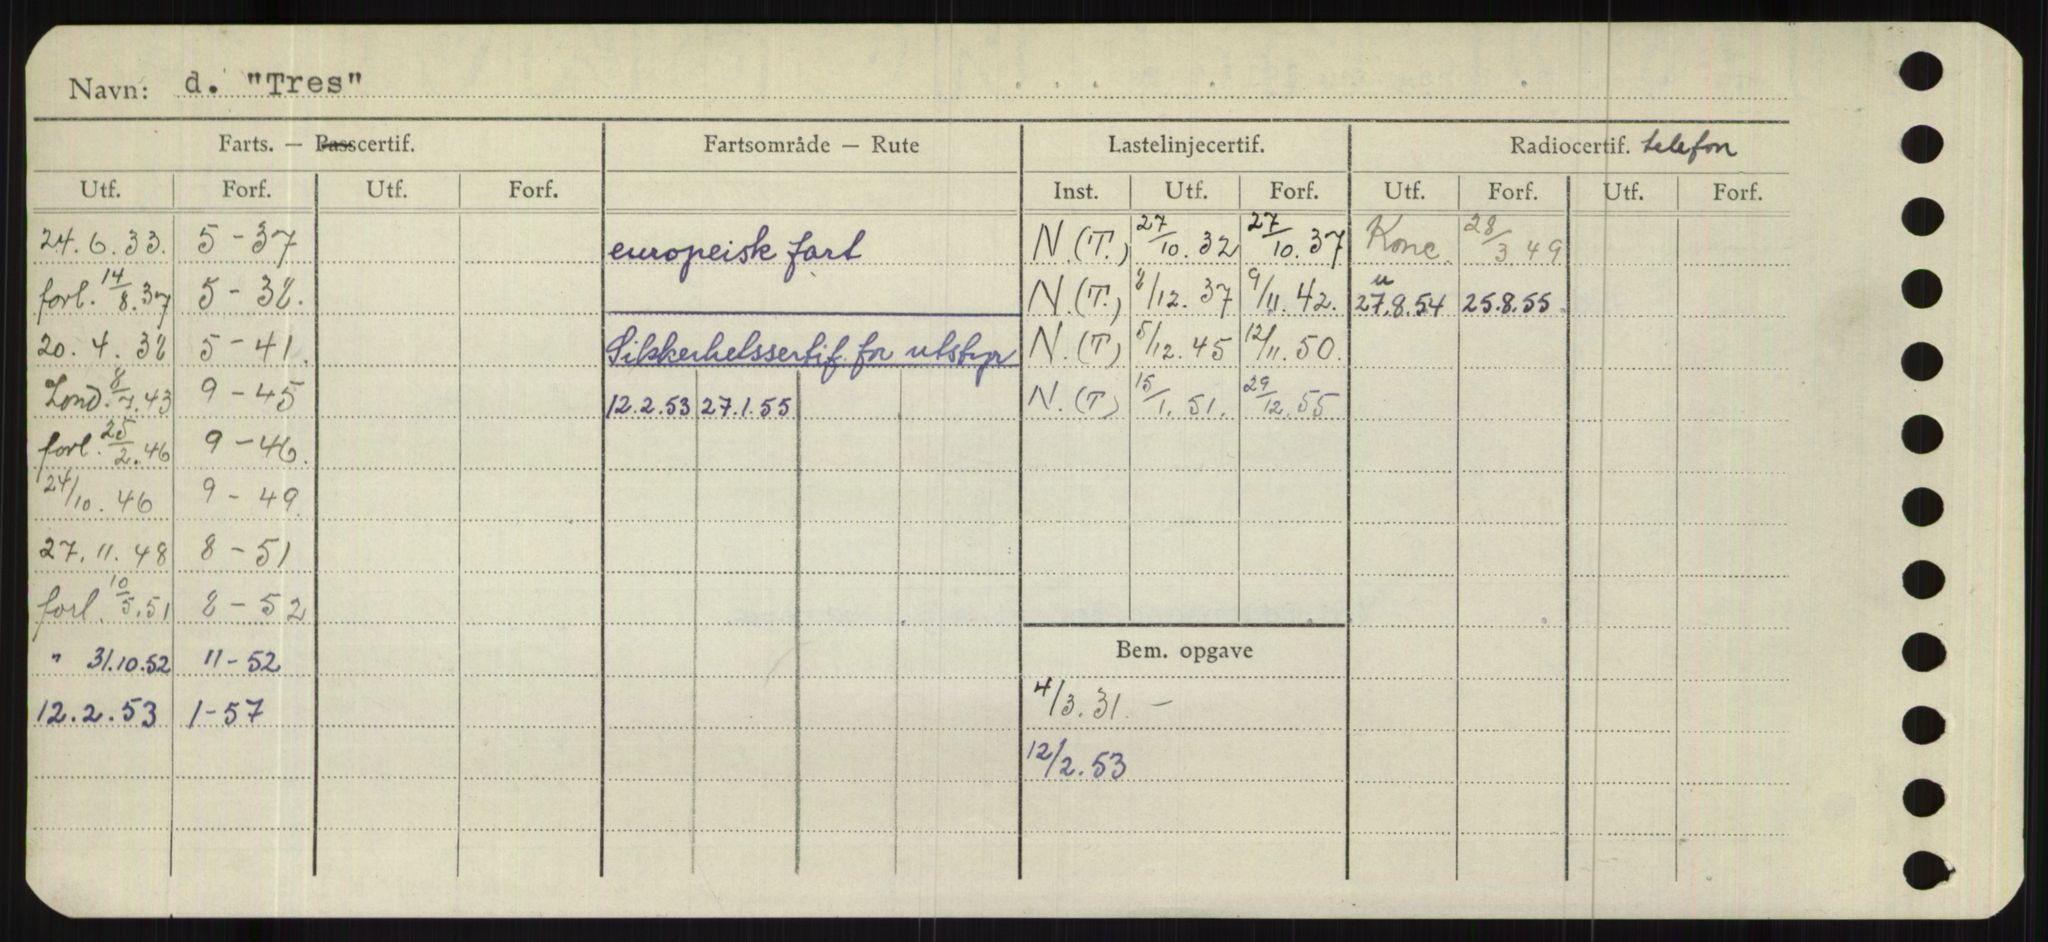 Navn: d. "Tres"
Farts. — Passcertif. Fartsområde — Rute Lastelinjecertif. Radiocertif. telefon
Utf. Forf. Utf. Forf. Inst. Utf. Forf. Utf. Forf. Utf. Forf.
24.6.33. 5-37 europeisk fart N.(T.) 27/10.32 27/10.37 Konc. 28/3 49
forl. 14/8.37 5-38. N.(T.) 8/12.37 9/11.42. u 27.8.54 25.8.55.
20.4.38 5-41. Sikkerhetssertif. for utstyr N.(T) 5/12.45 12/11.50.
Lond. 8/7.43 9-45 12.2.53 27.1.55 N.(T) 15/1.51. 29/12.55
forl. 25/2.46 9-46.
24/10.46 9-49.
27.11.48 8-51
forl. 10/5.51 8-52
" 31.10.52 11-52 Bem. opgave
12.2.53 1-57 4/3.31. —
12/2.53